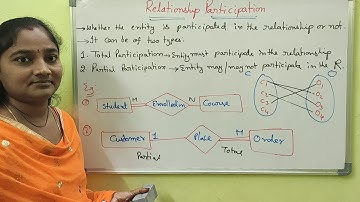 Relationship Participation
→Whether the entity is participated in the relationship or not
→It can be of two types:
1. Total Participation→Entity must participate in the relationship
2. Partial Participation→Entity may/may not participate in the R.
Eg
C
O
①
Student
M
Enrollation
N
Course
②
Customer
1
Place
M
Order
Partial
Total